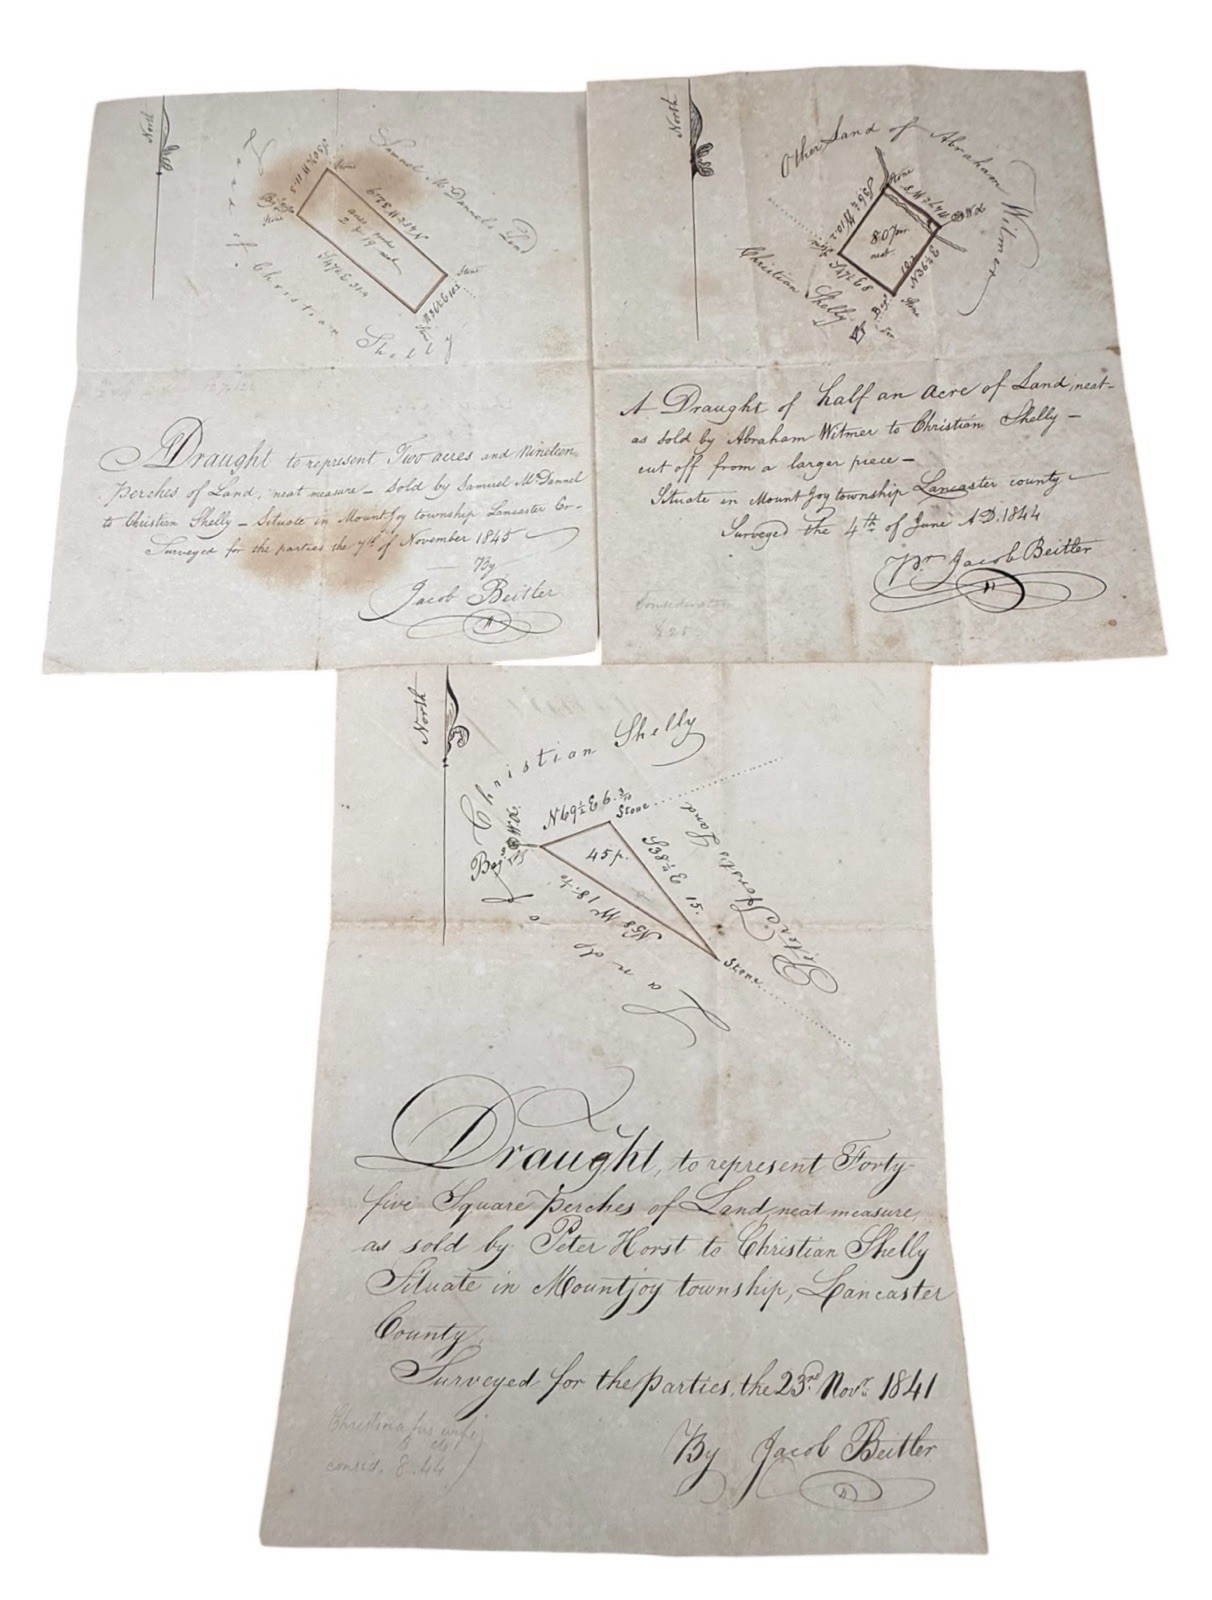 North
Samuel McDannels Land
S50½W 11.3
Stone
Stone
N47½W 32.9
acres perches
2 & 19
neat
S47½E 31.9
Stone
Land of Christian Shelly
A Draught to represent Two acres and Nineteen
Perches of Land, neat measure – Sold by Samuel McDannel
to Christian Shelly – Situate in Mountjoy township Lancaster Co–
Surveyed for the parties the 7th of November 1845
By
Jacob Beitler
North
Other Land of Abraham Witmer
Stone
N47½W 8
W.O.
S36½W 10.2
80 per
neat
10.2
N36½E
S47½E 8
Stone
Beg.
Christian Shelly
A Draught of half an Acre of Land, neat–
as sold by Abraham Witmer to Christian Shelly –
cut off from a larger piece –
Situate in Mount Joy township Lancaster county –
Surveyed the 4th of June A.D. 1844
Pr Jacob Beitler
Consideration
$25
North
Christian Shelly
N69½E 6.
Stone
Beg.
W.O.
45 p.
S38½E 15.
N58W 18.
Stone
Peter Horst's Land
Land of
Draught, to represent Forty-
five Square Perches of Land, neat measure,
as sold by Peter Horst to Christian Shelly
Situate in Mountjoy township, Lancaster
County,
Surveyed for the parties, the 23rd Novr. 1841
By Jacob Beitler
Christina his wife
consid. 8.44